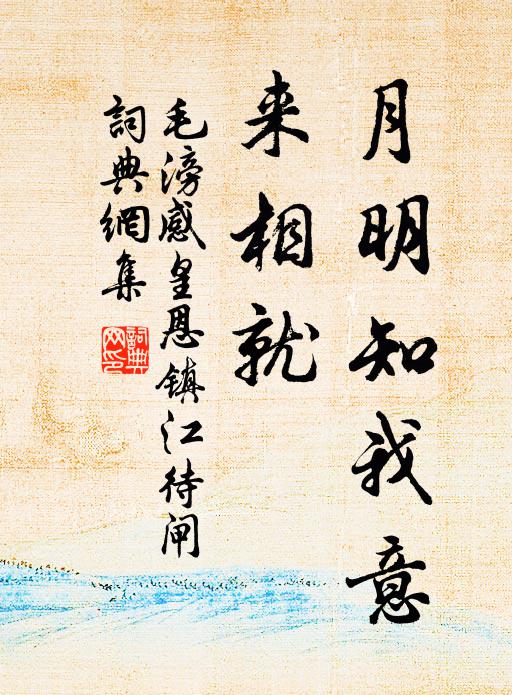 月明知我意
来相就
毛滂感皇恩镇江待闸
詞典網集
詞典
网印